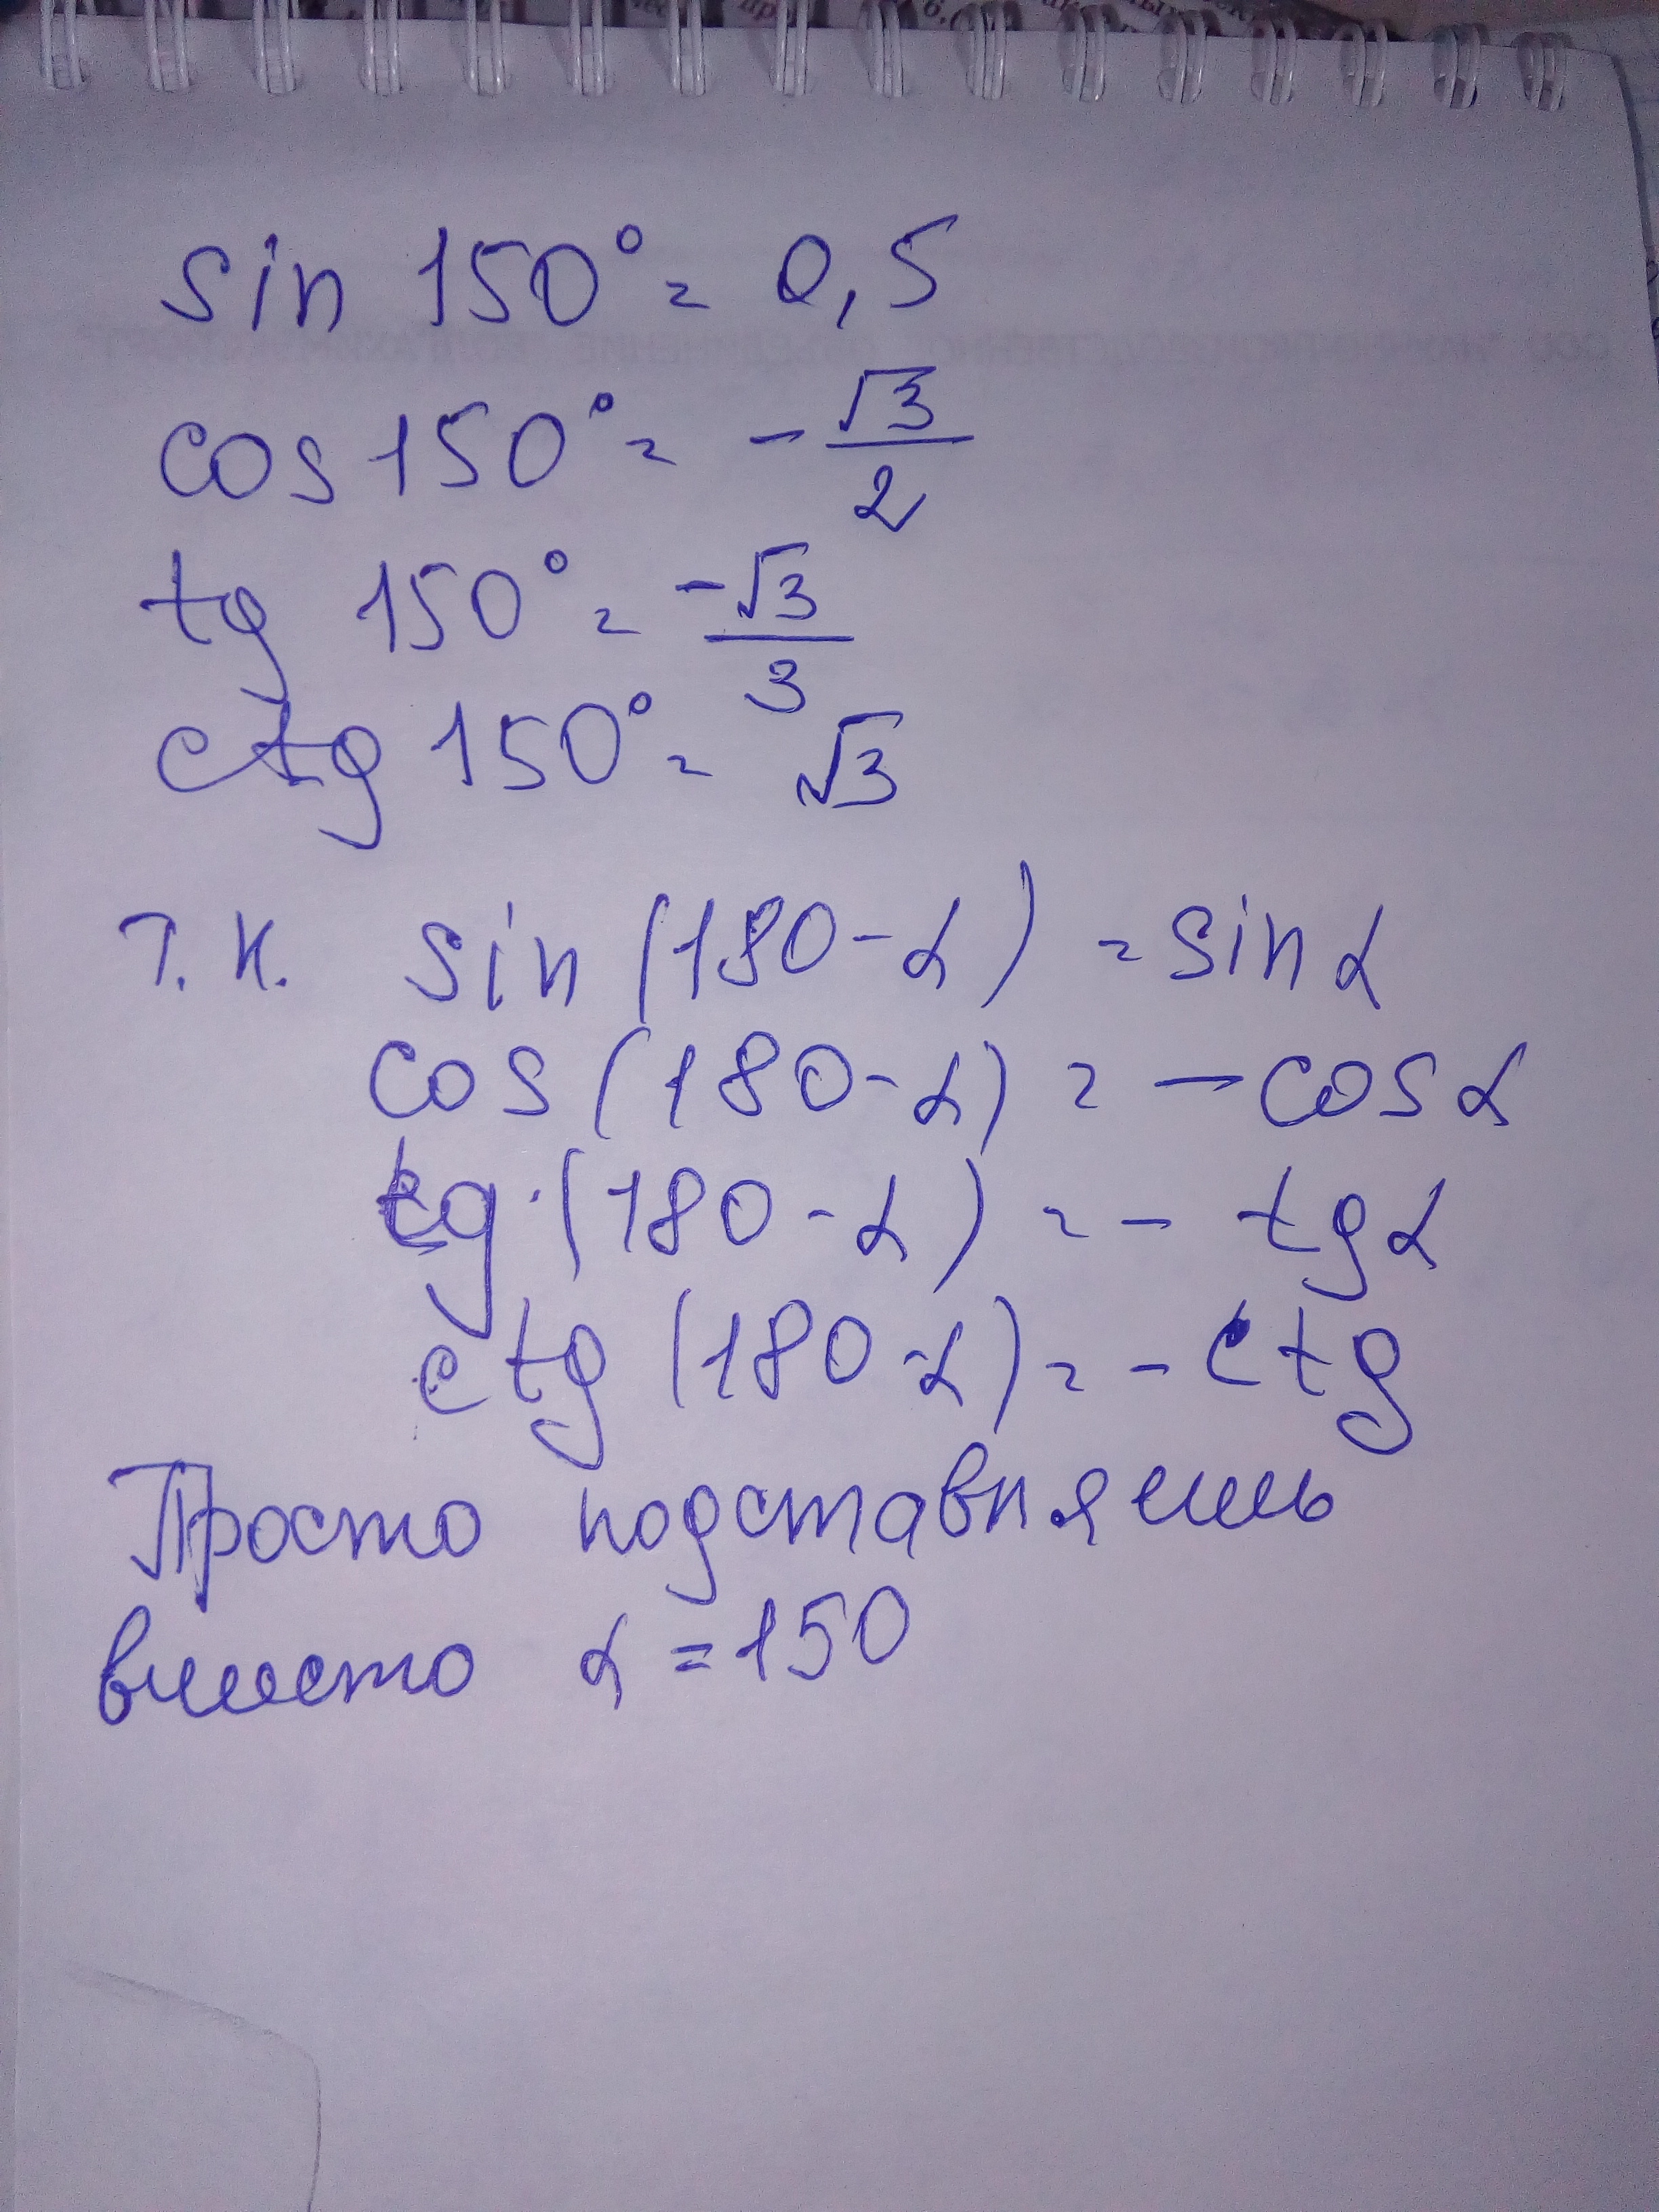 sin 150° = 0,5
cos 150° = -√3/2
tg 150° = -√3/3
ctg 150° = √3
т.к. sin (180-α) = sin α
cos (180-α) = - cos α
tg (180-α) = - tg α
ctg (180-α) = - ctg
Просто подставляешь
вместо α = 150